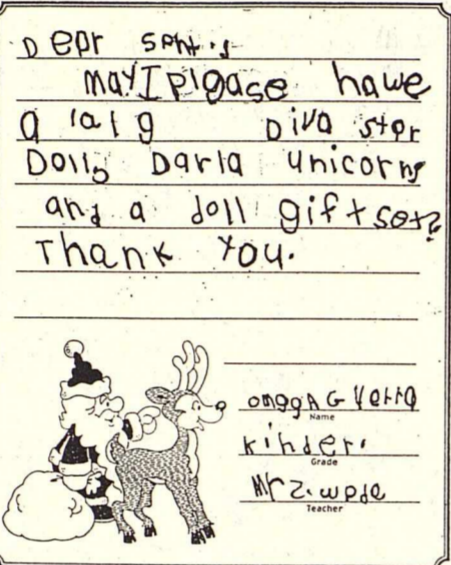 Dear Santa,
May I please have
a large Diva Star
Doll, Darla unicorns
and a doll gift set?
Thank You.
Guerra
Name
Kinder.
Grade
Mrs. Wade
Teacher